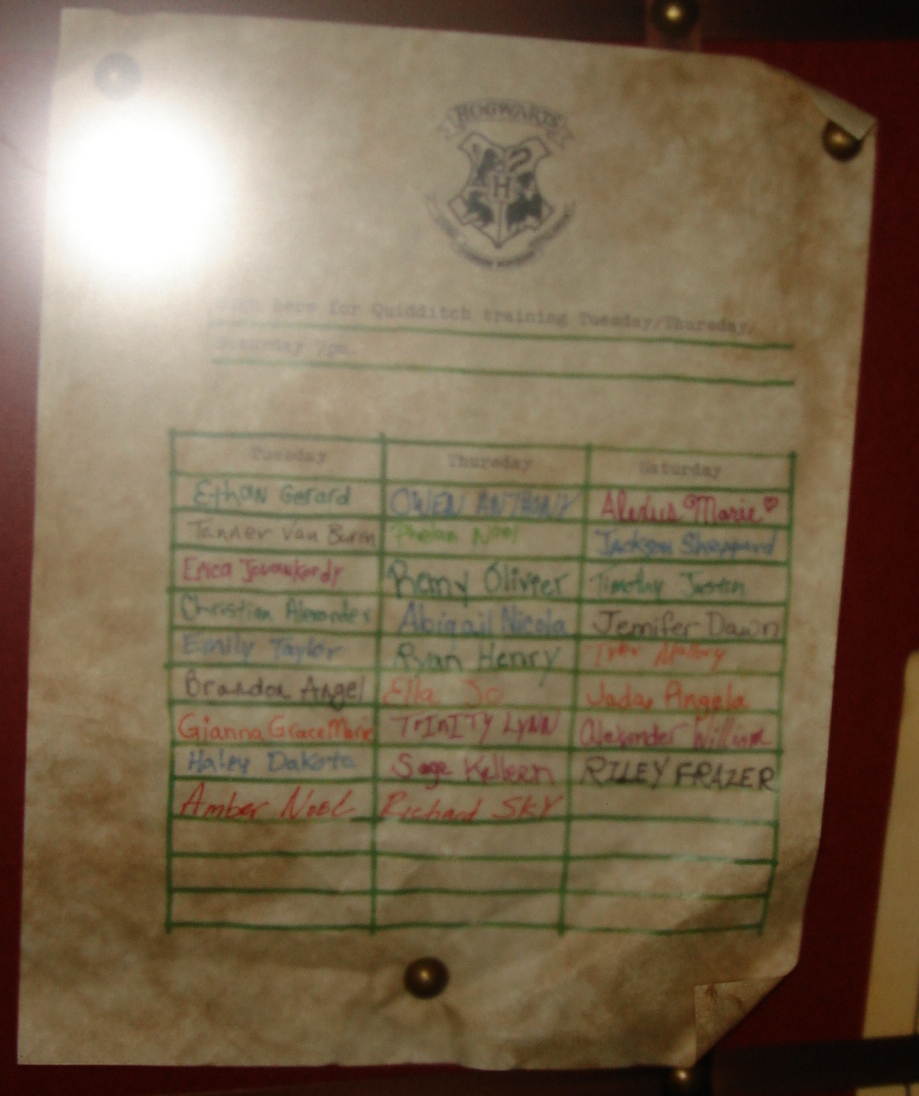 HOGWARTS
H
here for Quidditch training Tuesday/Thursday/
Saturday 7pm
Tuesday Thursday Saturday
Ethan Gerard OWEN ANTHONY Alexus Marie
Tanner Van Buren Phelan Noel Jackson Sheppard
Erica Remy Olivier Timothy Justin
Christian Alexander Abigail Nicola Jennifer Dawn
Emily Taylor Ryan Henry
Brandon Angel Ella Jo Jada Angela
Gianna GraceMarie TRINITY LYNN Alexander William
Haley Dakota Sage Kelleen RILEY FRAZER
Amber Noel Richard SKY